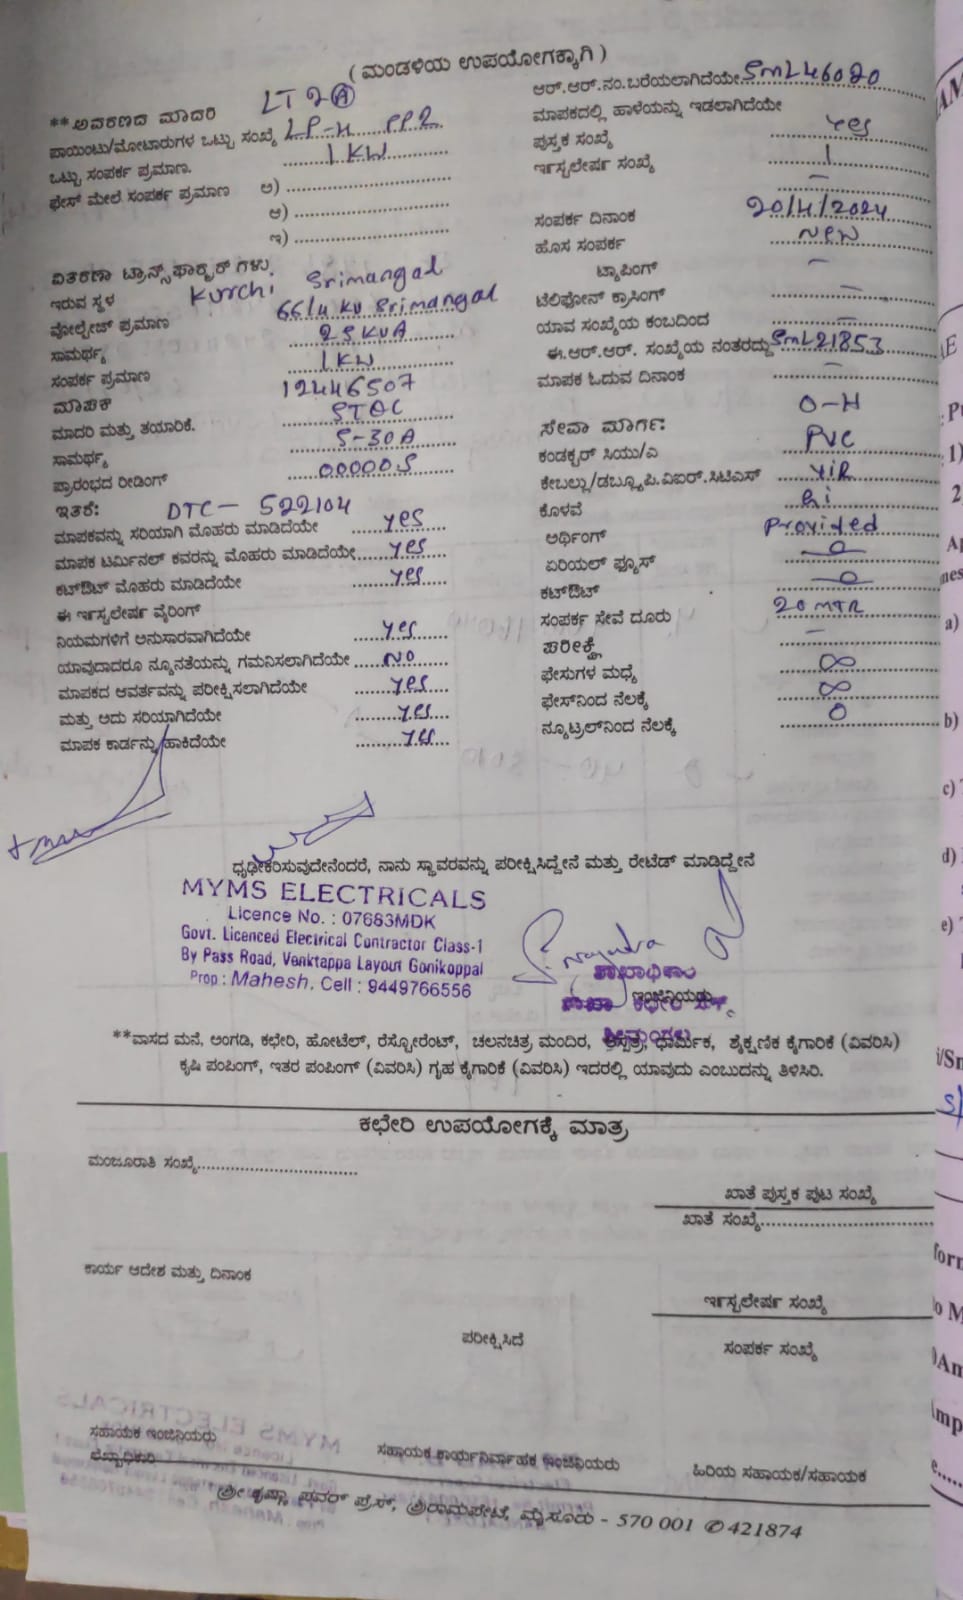 ( ಮಂಡಳಿಯ ಉಪಯೋಗಕ್ಕಾಗಿ )
**ಅವಕರಣದ ಮಾದರಿ LT 2(A)
ಪಾಯಿಂಟು/ಮೋಟಾರುಗಳ ಒಟ್ಟು ಸಂಖ್ಯೆ LP-4 PP2
ಒಟ್ಟು ಸಂಪರ್ಕ ಪ್ರಮಾಣ. 1 KW
ಫೇಸ್ ಮೇಲೆ ಸಂಪರ್ಕ ಪ್ರಮಾಣ ಅ)
ಆ)
ಇ)
ವಿತರಣಾ ಟ್ರಾನ್ಸ್‌ಫಾರ್‍ಮರ್ ಗಳು
ಇರುವ ಸ್ಥಳ Kurchi Srimangal
ವೋಲ್ಟೇಜ್ ಪ್ರಮಾಣ 66/11 KV Srimangal
ಸಾಮರ್ಥ್ಯ 25 KVA
ಸಂಪರ್ಕ ಪ್ರಮಾಣ 1 KW
ಮಾಪಕ 12446507
ಮಾದರಿ ಮತ್ತು ತಯಾರಿಕೆ.
ಸಾಮರ್ಥ್ಯ 5-30A
ಪ್ರಾರಂಭದ ರೀಡಿಂಗ್ 00000.5
ಇತರೆ: DTC - 522104
ಮಾಪಕವನ್ನು ಸರಿಯಾಗಿ ಮೊಹರು ಮಾಡಿದೆಯೇ yes
ಮಾಪಕ ಟರ್ಮಿನಲ್ ಕವರನ್ನು ಮೊಹರು ಮಾಡಿದೆಯೇ yes
ಕಟ್‌ಔಟ್ ಮೊಹರು ಮಾಡಿದೆಯೇ yes
ಈ ಇನ್‌ಸ್ಟಲೇಷನ್ ವೈರಿಂಗ್
ನಿಯಮಗಳಿಗೆ ಅನುಸಾರವಾಗಿದೆಯೇ yes
ಯಾವುದಾದರೂ ನ್ಯೂನತೆಯನ್ನು ಗಮನಿಸಲಾಗಿದೆಯೇ NO
ಮಾಪಕದ ಆವರ್ತವನ್ನು ಪರೀಕ್ಷಿಸಲಾಗಿದೆಯೇ yes
ಮತ್ತು ಅದು ಸರಿಯಾಗಿದೆಯೇ yes
ಮಾಪಕ ಕಾರ್ಡನ್ನು ಹಾಕಿದೆಯೇ yes
ಆರ್.ಆರ್.ನಂ.ಬರೆಯಲಾಗಿದೆಯೇ SML46020
ಮಾಪಕದಲ್ಲಿ ಹಾಳೆಯನ್ನು ಇಡಲಾಗಿದೆಯೇ
ಪುಸ್ತಕ ಸಂಖ್ಯೆ yes
ಇನ್‌ಸ್ಟಲೇಷನ್ ಸಂಖ್ಯೆ 1
–
ಸಂಪರ್ಕ ದಿನಾಂಕ 20/4/2024
ಹೊಸ ಸಂಪರ್ಕ New
ಟ್ಯಾಪಿಂಗ್ –
ಟೆಲಿಫೋನ್ ಕ್ರಾಸಿಂಗ್ –
ಯಾವ ಸಂಖ್ಯೆಯ ಕಂಬದಿಂದ –
ಈ.ಆರ್.ಆರ್. ಸಂಖ್ಯೆಯ ನಂತರದ್ದು SML21853
ಮಾಪಕ ಓದುವ ದಿನಾಂಕ –
ಸೇವಾ ಮಾರ್ಗ: O-H
ಕಂಡಕ್ಟರ್ ಸಿಯು/ಎ PVC
ಕೇಬಲ್ಲು/ಡಬ್ಲ್ಯೂ.ಪಿ.ವಿಐಆರ್.ಸಿಟಿಎಸ್ VIR
ಕೊಳವೆ Gi
ಅರ್ಥಿಂಗ್ Provided
ಏರಿಯಲ್ ಫ್ಯೂಸ್ 0
ಕಟ್‌ಔಟ್ 0
ಸಂಪರ್ಕ ಸೇವೆ ದೂರು 20 MTR
ಪರೀಕ್ಷೆ –
ಫೇಸುಗಳ ಮಧ್ಯೆ ∞
ಫೇಸ್‌ನಿಂದ ನೆಲಕ್ಕೆ ∞
ನ್ಯೂಟ್ರಲ್‌ನಿಂದ ನೆಲಕ್ಕೆ 0
ಧೃಢೀಕರಿಸುವುದೇನೆಂದರೆ, ನಾನು ಸ್ಥಾವರವನ್ನು ಪರೀಕ್ಷಿಸಿದ್ದೇನೆ ಮತ್ತು ರೇಟೆಡ್ ಮಾಡಿದ್ದೇನೆ
MYMS ELECTRICALS
Licence No. : 07683MDK
Govt. Licenced Electrical Contractor Class-1
By Pass Road, Venktappa Layout Gonikoppal
Prop : Mahesh. Cell : 9449766556
ಶಾಖಾಧಿಕಾರಿ
ಇಂಜಿನಿಯರು
ಶ್ರೀಮಂಗಲ
**ವಾಸದ ಮನೆ, ಅಂಗಡಿ, ಕಛೇರಿ, ಹೋಟೆಲ್, ರೆಸ್ಟೋರೆಂಟ್, ಚಲನಚಿತ್ರ ಮಂದಿರ, ಆಸ್ಪತ್ರೆ, ಧಾರ್ಮಿಕ, ಶೈಕ್ಷಣಿಕ ಕೈಗಾರಿಕೆ (ವಿವರಿಸಿ)
ಕೃಷಿ ಪಂಪಿಂಗ್, ಇತರ ಪಂಪಿಂಗ್ (ವಿವರಿಸಿ) ಗೃಹ ಕೈಗಾರಿಕೆ (ವಿವರಿಸಿ) ಇದರಲ್ಲಿ ಯಾವುದು ಎಂಬುದನ್ನು ತಿಳಿಸಿರಿ.
ಕಛೇರಿ ಉಪಯೋಗಕ್ಕೆ ಮಾತ್ರ
ಮಂಜೂರಾತಿ ಸಂಖ್ಯೆ
ಖಾತೆ ಪುಸ್ತಕ ಪುಟ ಸಂಖ್ಯೆ
ಖಾತೆ ಸಂಖ್ಯೆ
ಕಾರ್ಯ ಆದೇಶ ಮತ್ತು ದಿನಾಂಕ
ಇನ್‌ಸ್ಟಲೇಷನ್ ಸಂಖ್ಯೆ
ಪರೀಕ್ಷಿಸಿದೆ
ಸಂಪರ್ಕ ಸಂಖ್ಯೆ
ಸಹಾಯಕ ಇಂಜಿನಿಯರು
ಲೆಖ್ಖಾಧಿಕಾರಿ
ಸಹಾಯಕ ಕಾರ್ಯನಿರ್ವಾಹಕ ಇಂಜಿನಿಯರು
ಹಿರಿಯ ಸಹಾಯಕ/ಸಹಾಯಕ
ಶ್ರೀ ಕೃಷ್ಣಾ ಪವರ್ ಪ್ರೆಸ್, ಶ್ರೀರಾಮಪೇಟೆ, ಮೈಸೂರು - 570 001 ✆ 421874